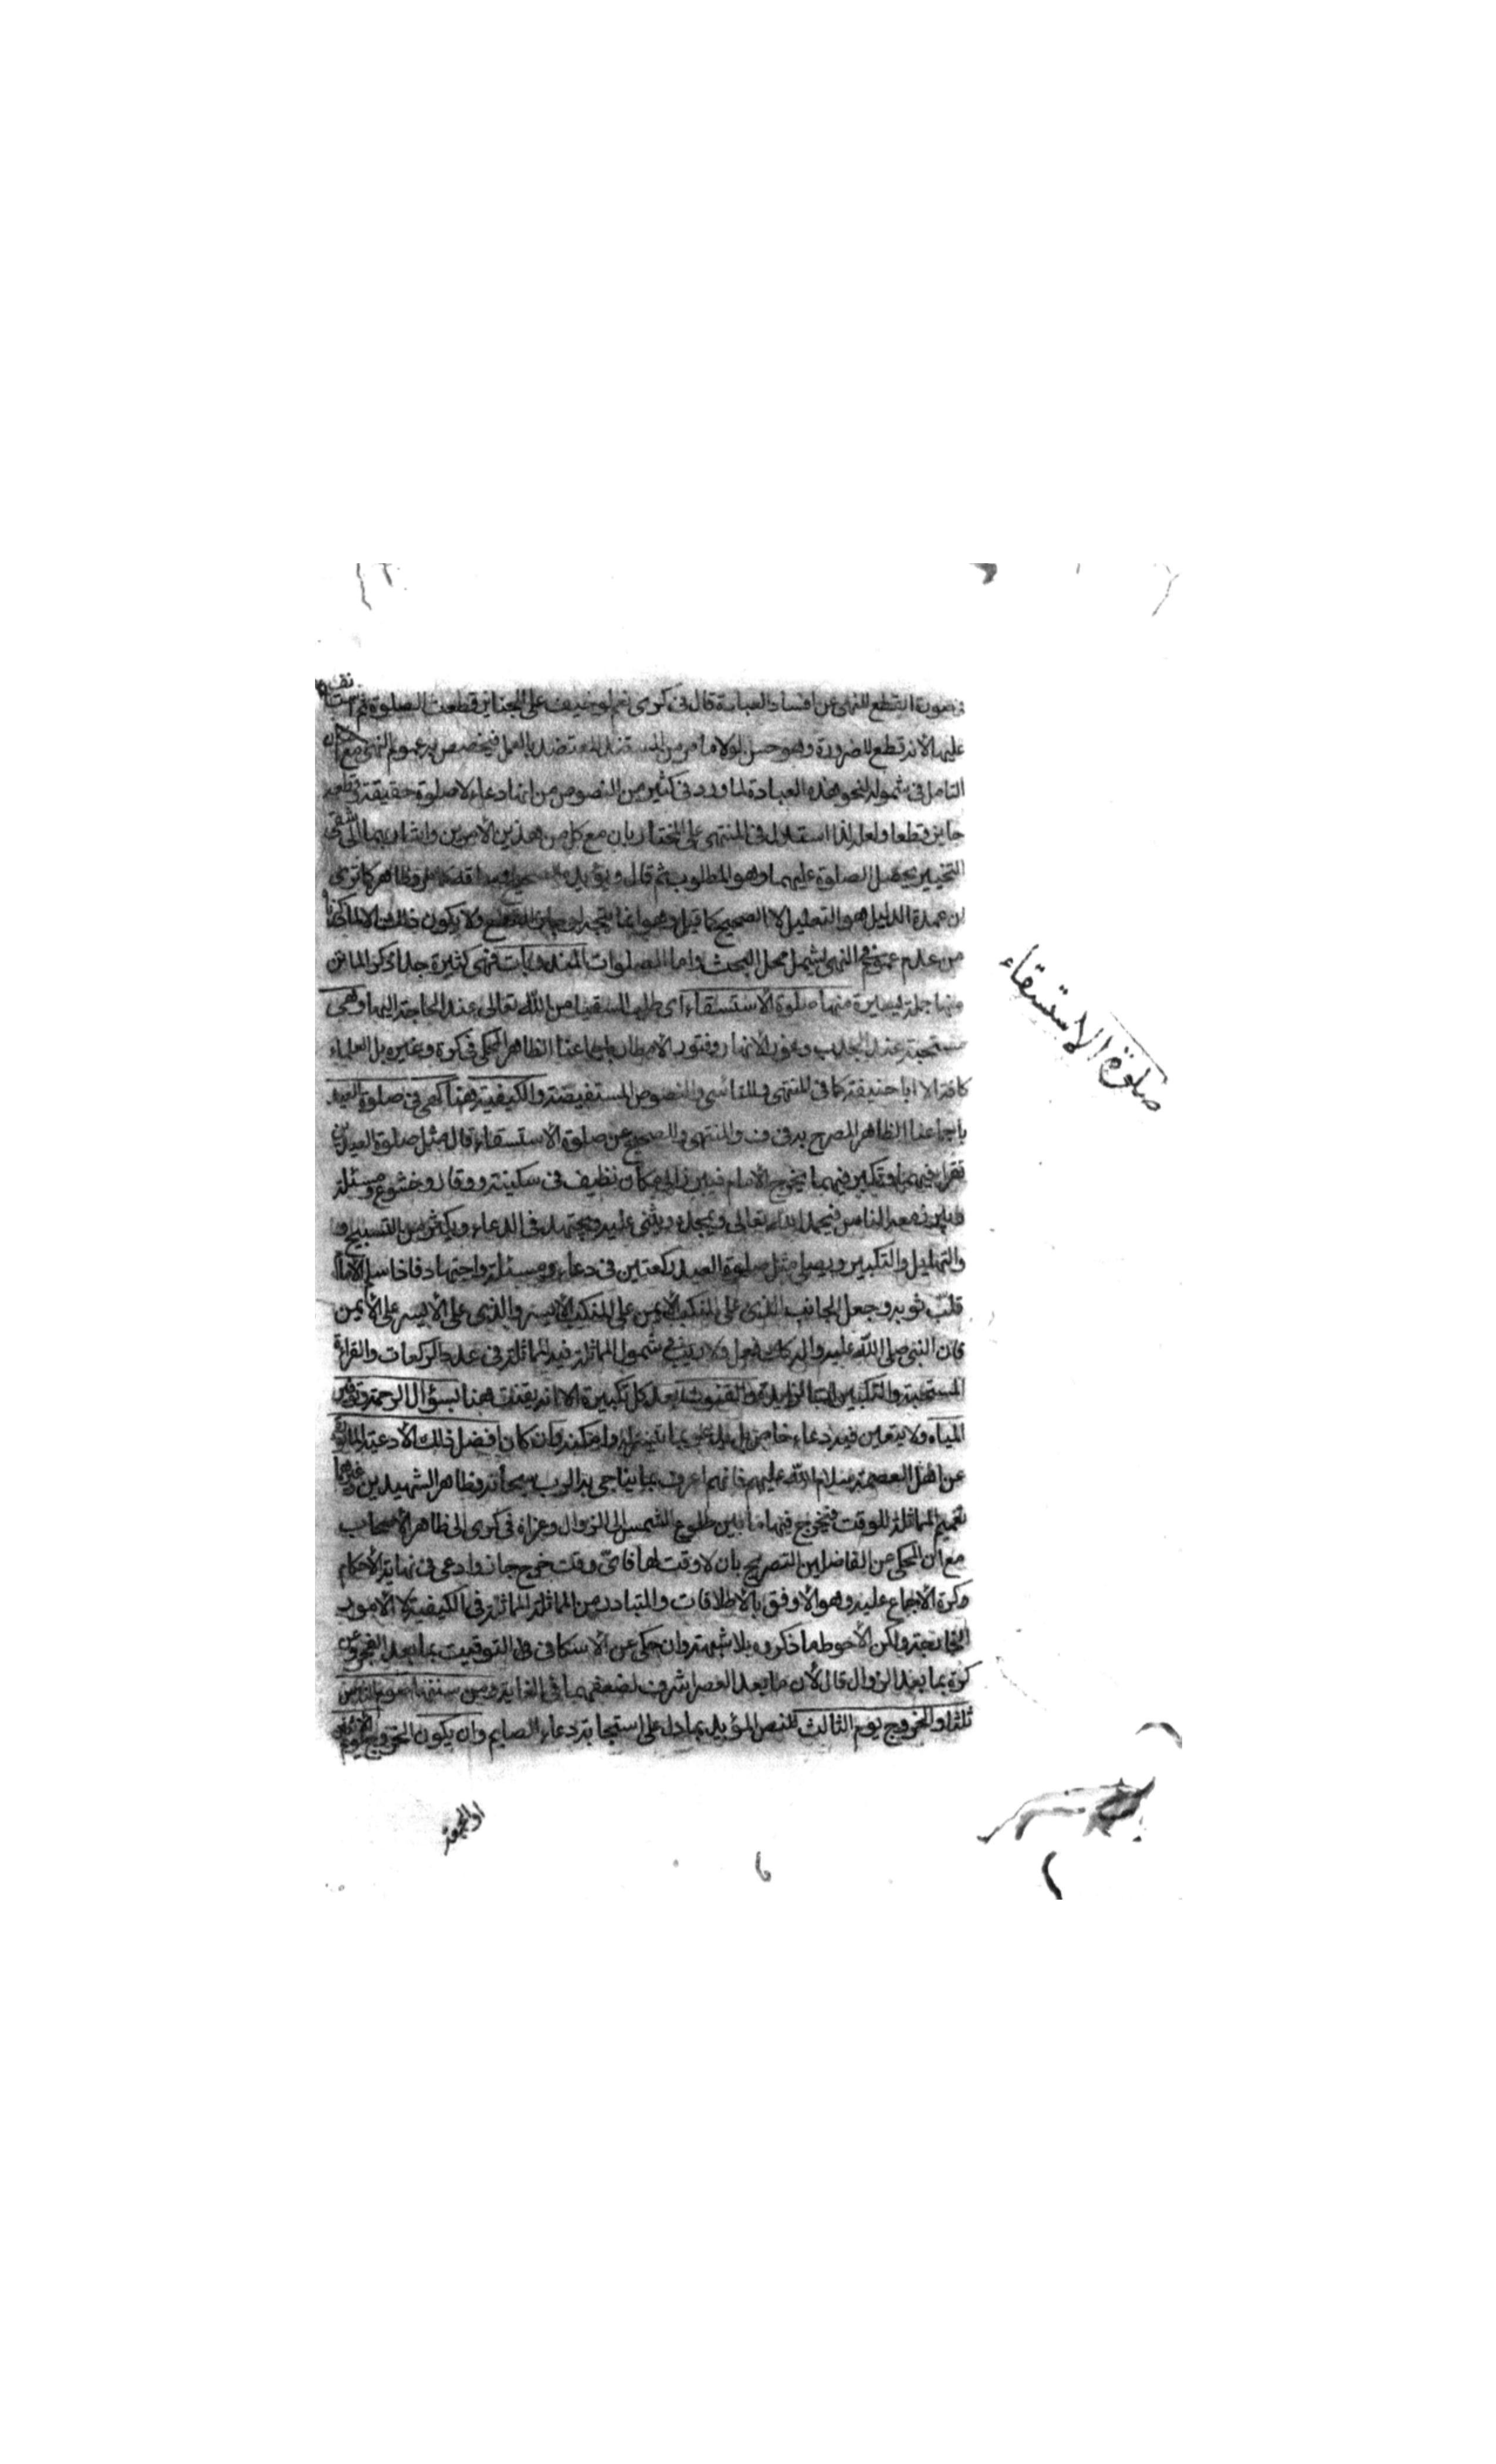 في صورة القطع للنهي عن افساد العبادة قال في كرى نعم لو خيف على الجنايز قطعت الصلوة ثم استأنف
عليها لانه قطع للضرورة وهو حسن لولا ما مر من المستفيد المعتضد بالعمل فيخصص به عموم النهي مع
التامل في شموله لنحو هذه العبادة لما ورد في كثير من النصوص من انها دعاء لا صلوة حقيقة وقطعه
جايز قطعا ولعله لذا استدل في المنتهى على المختار بان مع كل من هذين الامرين
التخيير يحصل الصلوة عليهما وهو المطلوب ثم قال ويؤيده كما ترى
ان عمدة الدليل هو التعليل لا الصحيح كما قيل وهو انما يتجه لو جاز القطع ولا يكون ذلك الا لما ذكرنا
من عدم عموم في النهي يشمل محل البحث واما الصلوات المندوبات فهي كثيرة جدا ذكر الماتن
منها جملة يسيرة منها صلوة الاستسقاء اي طلب السقيا من الله تعالى عند الحاجة اليها وهي
مستحبة عند الجدب وغور الانهار وفتور الامطار باجماعنا الظاهر المحكي في كرة وغيره بل العلماء
كافة الا ابا حنيفة كما في المنتهى والنصوص المستفيضة والكيفية هنا كهي في صلوة العيد
باجماعنا الظاهر المصرح به في ف والمنتهى والصحيح عن صلوة الاستسقاء قال مثل صلوة العيدين
تقرا فيهما وتكبر فيهما يخرج الامام فيبرز الى مكان نظيف في سكينة ووقار وخشوع ومسئلة
ويبرز معه الناس فيحمد الله تعالى ويمجده ويثني عليه ويجتهد في الدعاء ويكثر من التسبيح
والتهليل والتكبير ويصلي مثل صلوة العيد ركعتين في دعاء ومسئلة واجتهاد فاذا سلم الامام
قلب ثوبه وجعل الجانب الذي على المنكب الايمن على المنكب الايسر والذي على الايسر على الايمن
فان النبي صلى الله عليه واله كذلك فعل ولا ريب في شمول المماثلة فيه المماثلة في عدد الركعات والقراءة
المستحبة والتكبيرات الزايدة والقنوت بعد كل تكبيرة الا انه يقنت هنا بسؤال الرحمة وتوفير
المياه ولا يتعين فيه دعاء خاص بل يدعو بما تيسر له وامكنه وان كان افضل ذلك الادعية المأثورة
عن اهل العصمة سلام الله عليهم فانهم اعرف بما يناجى به الرب سبحانه وظاهر الشهيدين وغيرهما
تعميم المماثلة للوقت فيخرج فيها ما بين طلوع الشمس الى الزوال وعزاه في كرى الى ظاهر الاصحاب
مع ان المحكي عن الفاضلين التصريح بان لا وقت لها فاي وقت خرج جاز وادعى في نهاية الاحكام
وكرة الاجماع عليه وهو الاوفق بالاطلاقات والمتبادر من المماثلة المماثلة في الكيفية لا الامور
الخارجة ولكن الاحوط ما ذكروه بلا شبهة وان حكي عن الاسكافي التوقيت بما بعد الفجر وعن
كرة بما بعد الزوال قال لان ما بعد العصر اشرف لضعفهما في الغاية ومن سننها صوم الناس
ثلثا والخروج يوم الثالث للنص المؤيد بما دل على استجابة دعاء الصايم وان يكون الخروج
او الجمعة
صلوة الاستسقاء